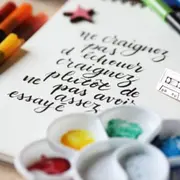 ne craignez
pas
d'échouer
craignez
plutôt de
ne pas avoir
essayé assez